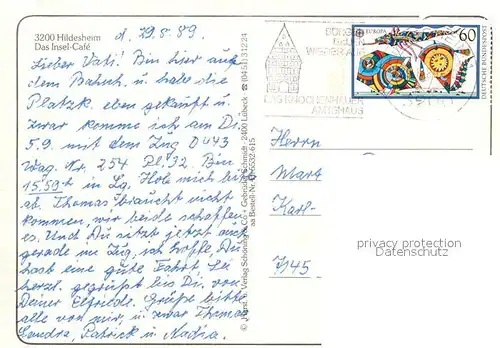 3200 Hildesheim
Das Insel-Café
d. 19.8.89.
Lieber Vati! Bin hier auf
dem Bahnh. u. habe die
Platzk. eben gekauft u.
zwar komme ich am Di.
5.9. mit dem Zug D 443
Wag. Nr. 254 Pl. 32. Bin
15.59 in Lg. Hole mich bitte
ab. Thomas braucht nicht
kommen, wir beide schaffen
es. Und Du sitzt jetzt auch
gerade im Zug, ich hoffe, Du
hast eine gute Fahrt. Sei
herzl. gegrüßt bis Di. von
Deiner Elfriede. Grüße bitte
alle von mir, u. zwar Thomas
Sandra, Patrick u. Nadia.
Schöning & Co + Gebrüder Schmidt · 2400 Lübeck ☎ (0451) 31224
BÜRGER
GEBEN
DAS KNOCHENHAUER
AMTSHAUS
EUROPA
60
DEUTSCHE BUNDESPOST
Herrn
Karl-
7145
privacy protection
Datenschutz